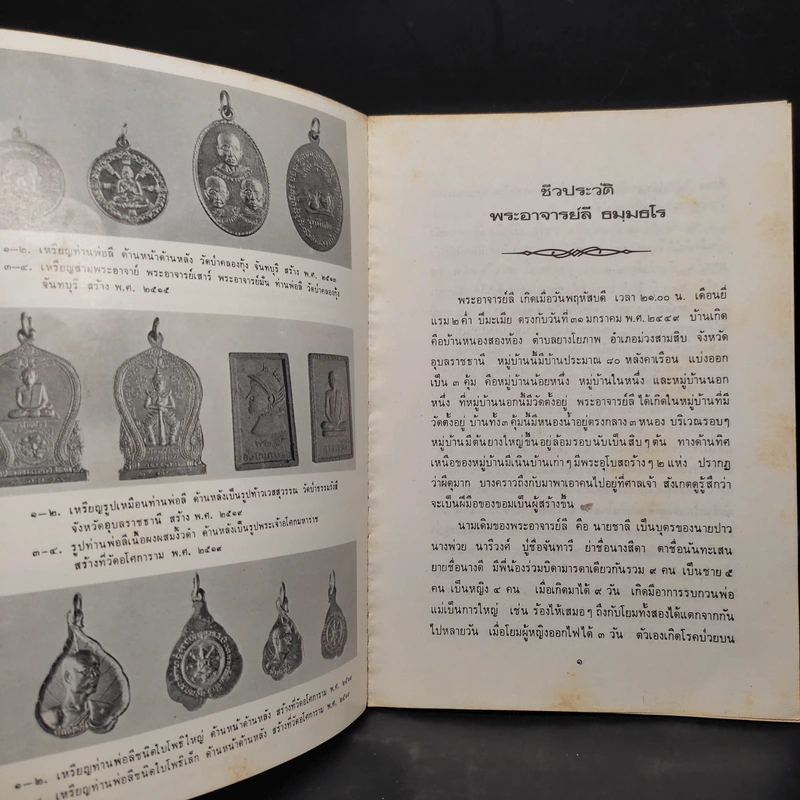 ๑–๒. เหรียญท่านพ่อลี ด้านหน้าด้านหลัง วัดป่าคลองกุ้ง จันทบุรี สร้าง พ.ศ.
๓–๔. เหรียญสามพระอาจารย์ พระอาจารย์เสาร์ พระอาจารย์มั่น ท่านพ่อลี วัดป่าคลองกุ้ง
จันทบุรี สร้าง พ.ศ. ๒๕๑๕
๑–๒. เหรียญรูปเหมือนท่านพ่อลี ด้านหลังเป็นรูปท้าวเวสสุวรรณ วัดป่าธรรมรังสี
จังหวัดอุบลราชธานี สร้าง พ.ศ. ๒๕๑๙
๓–๔. รูปท่านพ่อลีเนื้อผงผสมงิ้วดำ ด้านหลังเป็นรูปพระเจ้าอโศกมหาราช
สร้างที่วัดอโศการาม พ.ศ. ๒๕๑๙
๑–๒. เหรียญท่านพ่อลีชนิดใบโพธิ์ใหญ่ ด้านหน้าด้านหลัง สร้างที่วัดอโศการาม พ.ศ.
เหรียญท่านพ่อลีชนิดใบโพธิ์เล็ก ด้านหน้าด้านหลัง สร้างที่วัดอโศการาม พ.ศ.
ชีวประวัติ
พระอาจารย์ลี ธมฺมธโร
พระอาจารย์ลี เกิดเมื่อวันพฤหัสบดี เวลา ๒๑.๐๐ น. เดือนยี่
แรม ๒ ค่ำ ปีมะเมีย ตรงกับวันที่ ๓๑ มกราคม พ.ศ. ๒๔๔๙ บ้านเกิด
คือบ้านหนองสองห้อง ตำบลยางโยภาพ อำเภอม่วงสามสิบ จังหวัด
อุบลราชธานี หมู่บ้านนี้มีบ้านประมาณ ๘๐ หลังคาเรือน แบ่งออก
เป็น ๓ คุ้ม คือหมู่บ้านน้อยหนึ่ง หมู่บ้านในหนึ่ง และหมู่บ้านนอก
หนึ่ง ที่หมู่บ้านนอกนี้มีวัดตั้งอยู่ พระอาจารย์ลีได้เกิดในหมู่บ้านที่มี
วัดตั้งอยู่ บ้านทั้ง ๓ คุ้มนี้มีหนองน้ำอยู่ตรงกลาง ๓ หนอง บริเวณรอบๆ
หมู่บ้านมีต้นยางใหญ่ขึ้นอยู่ล้อมรอบนับเป็นสิบๆ ต้น ทางด้านทิศ
เหนือของหมู่บ้านมีเนินบ้านเก่าๆ มีพระอุโบสถร้างๆ ๒ แห่ง ปรากฏ
ว่าผีดุมาก บางคราวถึงกับมาพาเอาคนไปอยู่ที่ศาลเจ้า สังเกตดูรู้สึกว่า
จะเป็นฝีมือของขอมเป็นผู้สร้างขึ้น
นามเดิมของพระอาจารย์ลี คือ นายชาลี เป็นบุตรของนายปาว
นางพ่วย นารีวงศ์ ปู่ชื่อจันทารี ย่าชื่อนางสีดา ตาชื่อนันทะเสน
ยายชื่อนางดี มีพี่น้องร่วมบิดามารดาเดียวกันรวม ๙ คน เป็นชาย ๕
คน เป็นหญิง ๔ คน เมื่อเกิดมาได้ ๙ วัน เกิดมีอาการรบกวนพ่อ
แม่เป็นการใหญ่ เช่น ร้องไห้เสมอๆ ถึงกับโยมทั้งสองได้แตกจากกัน
ไปหลายวัน เมื่อโยมผู้หญิงออกไฟได้ ๓ วัน ตัวเองเกิดโรคป่วยบน
๑